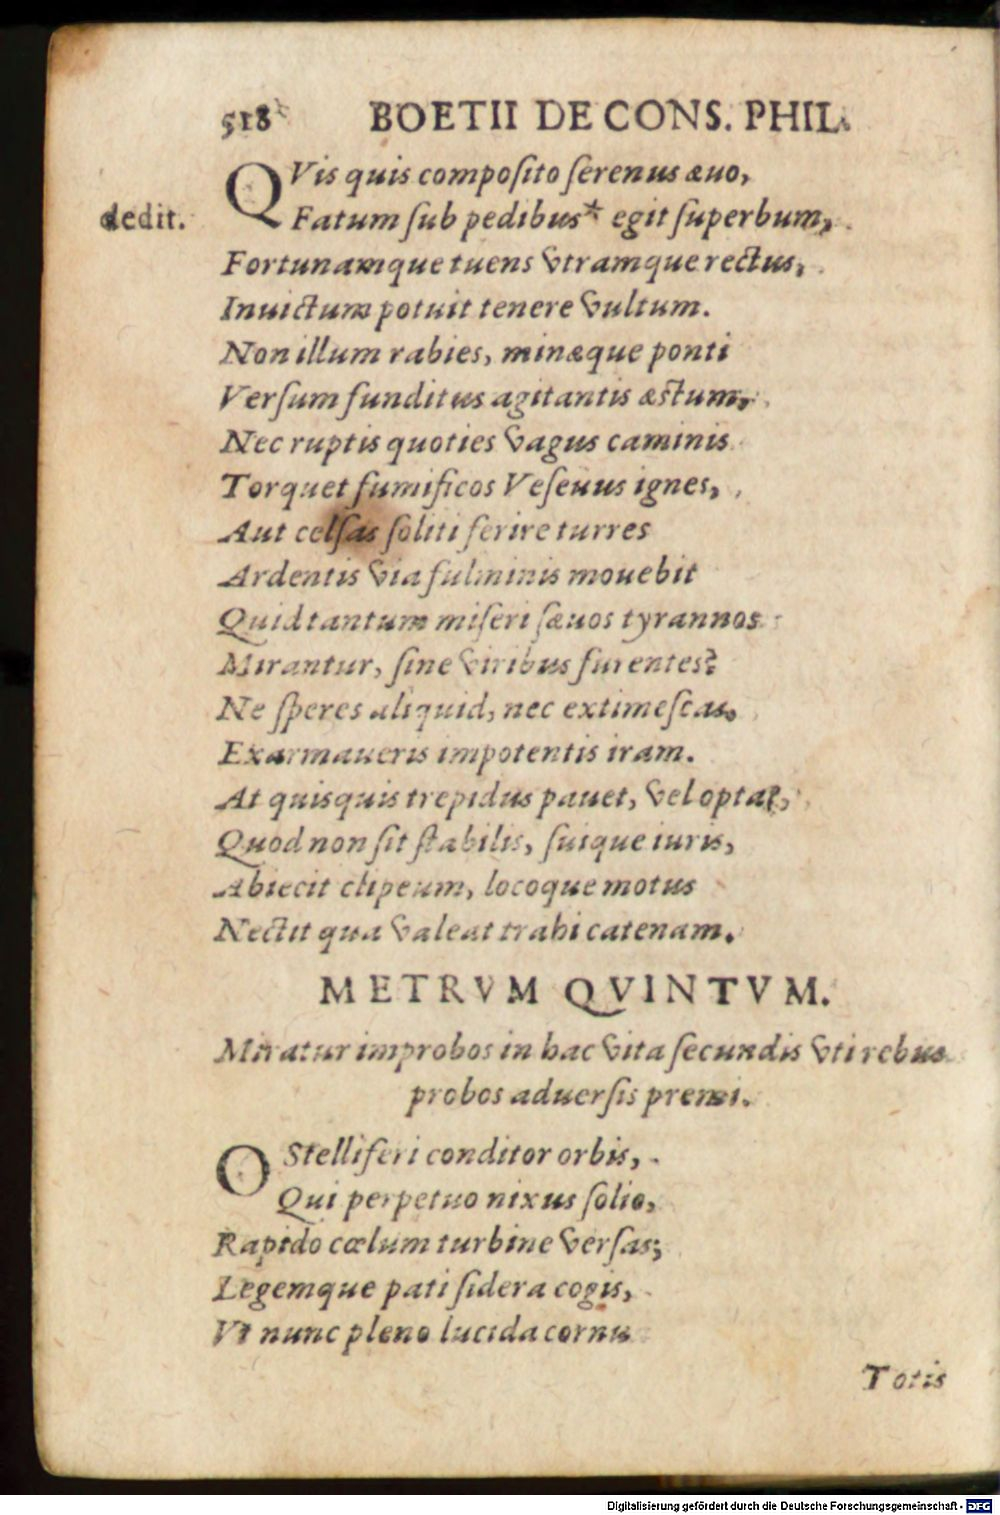 518 BOETII DE CONS. PHIL.
QVis quis composito serenus æuo,
dedit. Fatum sub pedibus* egit superbum,
Fortunamque tuens vtramque rectus,
Inuictum potuit tenere vultum.
Non illum rabies, minæque ponti
Versum funditus agitantis æstum,
Nec ruptis quoties vagus caminis
Torquet fumificos Veseuus ignes,
Aut celsas soliti ferire turres
Ardentis via fulminis mouebit
Quid tantum miseri sæuos tyrannos
Mirantur, sine viribus furentes?
Ne speres aliquid, nec extimescas,
Exarmaueris impotentis iram.
At quisquis trepidus pauet, vel optat,
Quod non sit stabilis, suique iuris,
Abiecit clipeum, locoque motus
Nectit qua valeat trahi catenam.
METRVM QVINTVM.
Miratur improbos in hac vita secundis vti rebus
probos aduersis premi.
O Stelliferi conditor orbis,
Qui perpetuo nixus solio,
Rapido cœlum turbine versas;
Legemque pati sidera cogis,
Vt nunc pleno lucida cornu
Totis
Digitalisierung gefördert durch die Deutsche Forschungsgemeinschaft - DFG